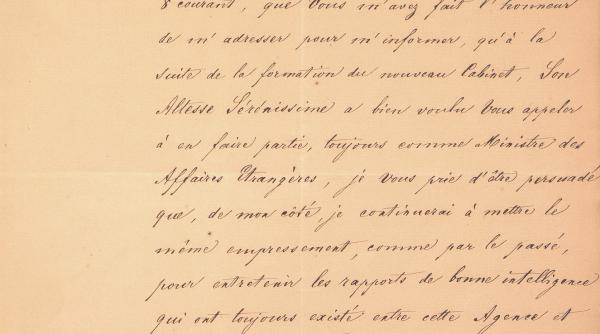 8 courant, que Vous m'avez fait l'honneur
de m'adresser pour m'informer, qu'à la
suite de la formation du nouveau Cabinet, Son
Altesse Sérénissime a bien voulu Vous appeler
à en faire partie, toujours comme Ministre des
Affaires Etrangères, je Vous prie d'être persuadé
que, de mon côté, je continuerai à mettre le
même empressement, comme par le passé,
pour entretenir les rapports de bonne intelligence
qui ont toujours existé entre cette Agence et